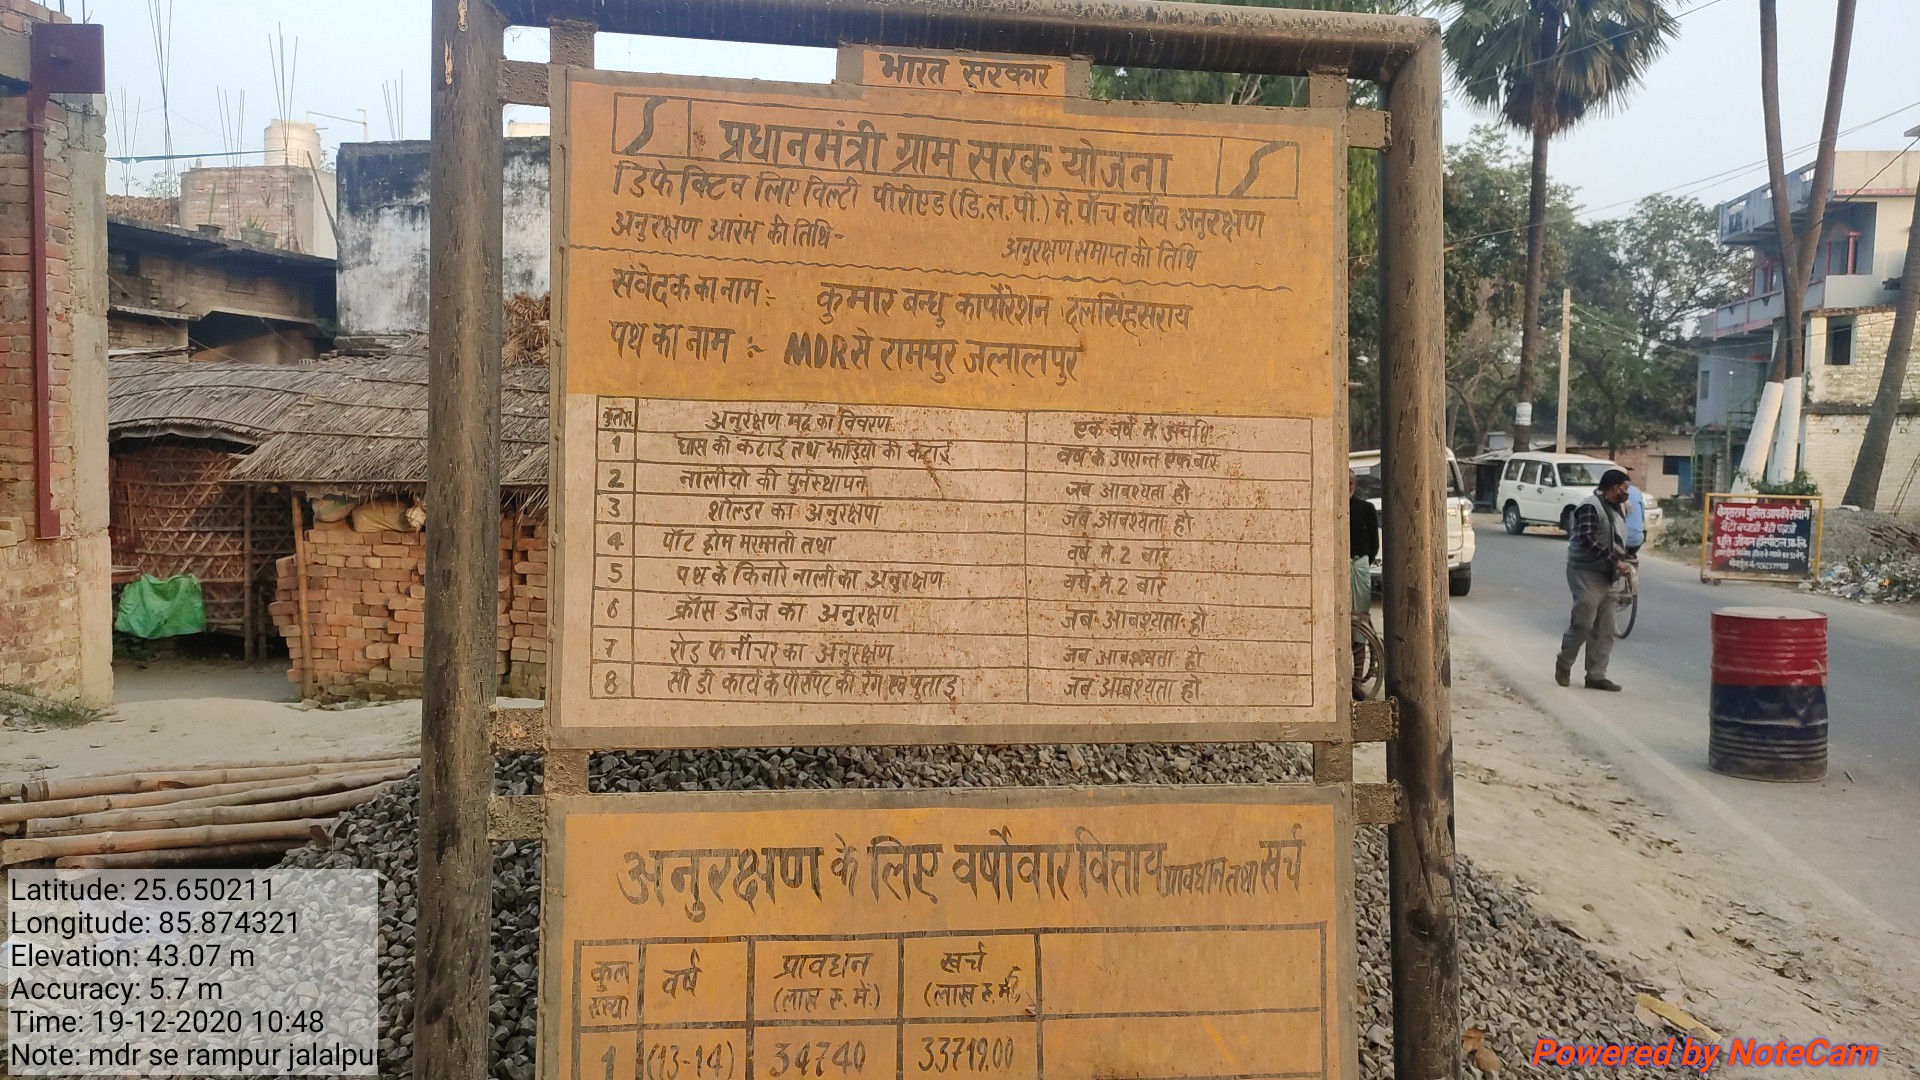 भारत सरकार
प्रधानमंत्री ग्राम सरक योजना
डिफेक्टिव लिए विल्टी पीरीएड (डि.ल.पी.) मे पाँच वर्षिय अनुरक्षण
अनुरक्षण आरंभ की तिथि-
अनुरक्षण समाप्त की तिथि
संवेदक का नाम :- कुमार बन्धु कार्पोरेशन दलसिंहसराय
पथ का नाम :- MDR से रामपुर जलालपुर
अनुरक्षण मद का विवरण एक वर्ष मे अवधि
1 घास की कटाई तथ झाड़ियो की कटाई वर्ष के उपरान्त एक बार
2 नालीयो की पुर्नस्थापन जब आबश्यता हो
3 शोल्डर का अनुरक्षण जब आबश्यता हो
4 पॉट होम मरम्मती तथा वर्ष मे 2 बार
5 पथ के किनारे नाली का अनुरक्षण वर्ष मे 2 बार
6 क्रॉस ड्नेज का अनुरक्षण जब आबश्यता हो
7 रोड फर्नीचर का अनुरक्षण जब आबश्यता हो
8 सी डी कार्य के पारापेट की रंग एवं पुताइ जब आबश्यता हो
अनुरक्षण के लिए वर्षोवार वित्तीय प्रावधान तथा खर्च
कुल संख्या वर्ष प्रावधान (लाख रु. में.) खर्च (लाख रु. में)
1 (13-14) 34740 33719.00
बेटी बचाओ-बेटी पढ़ाओ
Latitude: 25.650211
Longitude: 85.874321
Elevation: 43.07 m
Accuracy: 5.7 m
Time: 19-12-2020 10:48
Note: mdr se rampur jalalpur
Powered by NoteCam